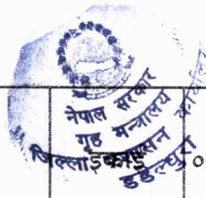 नेपाल सरकार
गृह मन्त्रालय
जिल्ला प्रशासन कार्यालय
डडेल्धुरा
इकाई
०